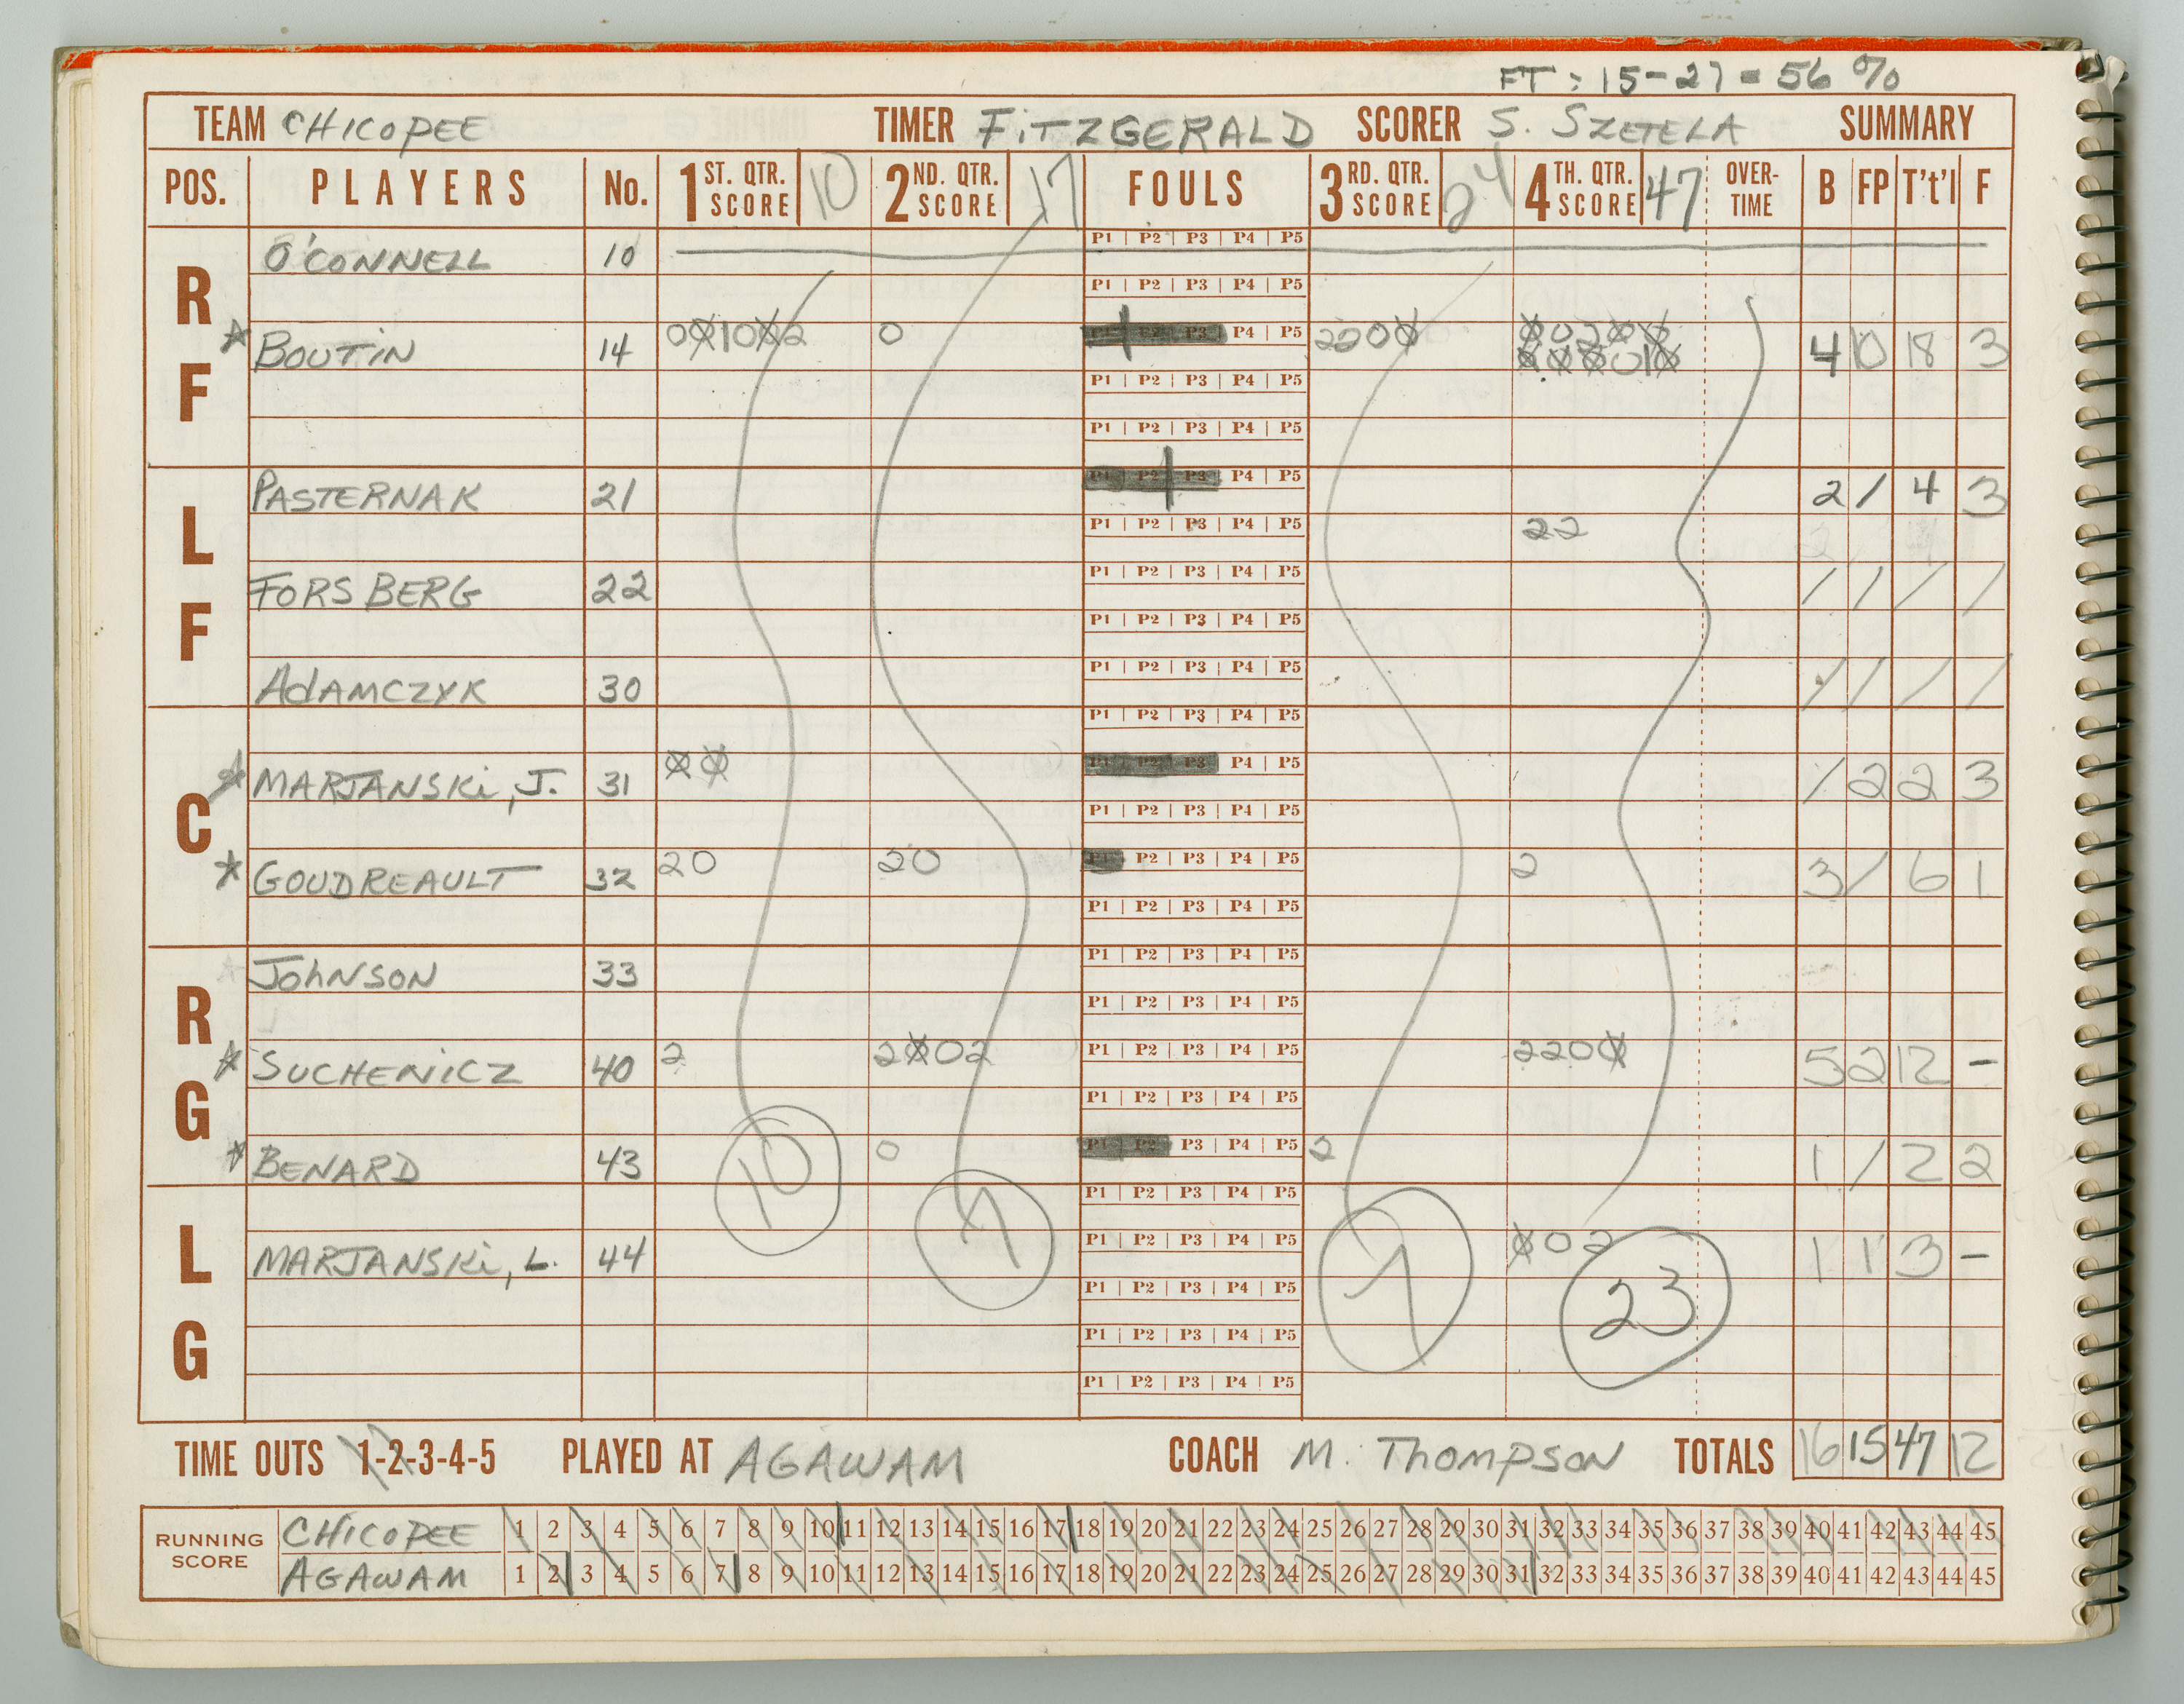 FT: 15-27 = 56 %
TEAM CHICOPEE TIMER FITZGERALD SCORER S. SZETELA SUMMARY
POS. PLAYERS No. 1 ST. QTR. SCORE 10 2 ND. QTR. SCORE 17 FOULS 3 RD. QTR. SCORE 24 4 TH. QTR. SCORE 47 OVER-TIME B FP T't'l F
RF
O'CONNELL 10 P1 | P2 | P3 | P4 | P5
P1 | P2 | P3 | P4 | P5
★ BOUTIN 14 001002 0 P1 P2 P3 P4 | P5 2200 4 10 18 3
P1 | P2 | P3 | P4 | P5
P1 | P2 | P3 | P4 | P5
LF
PASTERNAK 21 P1 P2 P3 P4 | P5 2 / 4 3
P1 | P2 | P3 | P4 | P5 22
FORSBERG 22 P1 | P2 | P3 | P4 | P5 / / / /
P1 | P2 | P3 | P4 | P5
ADAMCZYK 30 P1 | P2 | P3 | P4 | P5 / / / /
C
P1 | P2 | P3 | P4 | P5
★ MARJANSKI, J. 31 00 P1 P2 P3 P4 | P5 / 2 2 3
P1 | P2 | P3 | P4 | P5
★ GOUDREAULT 32 20 20 P1 P2 | P3 | P4 | P5 2 3 / 6 1
P1 | P2 | P3 | P4 | P5
RG
JOHNSON 33 P1 | P2 | P3 | P4 | P5
P1 | P2 | P3 | P4 | P5
★ SUCHENICZ 40 2 2002 P1 | P2 | P3 | P4 | P5 2200 5 2 12 -
P1 | P2 | P3 | P4 | P5
★ BENARD 43 0 P1 P2 P3 | P4 | P5 2 1 / 2 2
LG
P1 | P2 | P3 | P4 | P5
MARJANSKI, L. 44 P1 | P2 | P3 | P4 | P5 002 1 1 3 -
P1 | P2 | P3 | P4 | P5
P1 | P2 | P3 | P4 | P5
P1 | P2 | P3 | P4 | P5
10 7 7 23
TIME OUTS 1-2-3-4-5 PLAYED AT AGAWAM COACH M. THOMPSON TOTALS 16 15 47 12
RUNNING SCORE
CHICOPEE 1 2 3 4 5 6 7 8 9 10 11 12 13 14 15 16 17 18 19 20 21 22 23 24 25 26 27 28 29 30 31 32 33 34 35 36 37 38 39 40 41 42 43 44 45
AGAWAM 1 2 3 4 5 6 7 8 9 10 11 12 13 14 15 16 17 18 19 20 21 22 23 24 25 26 27 28 29 30 31 32 33 34 35 36 37 38 39 40 41 42 43 44 45